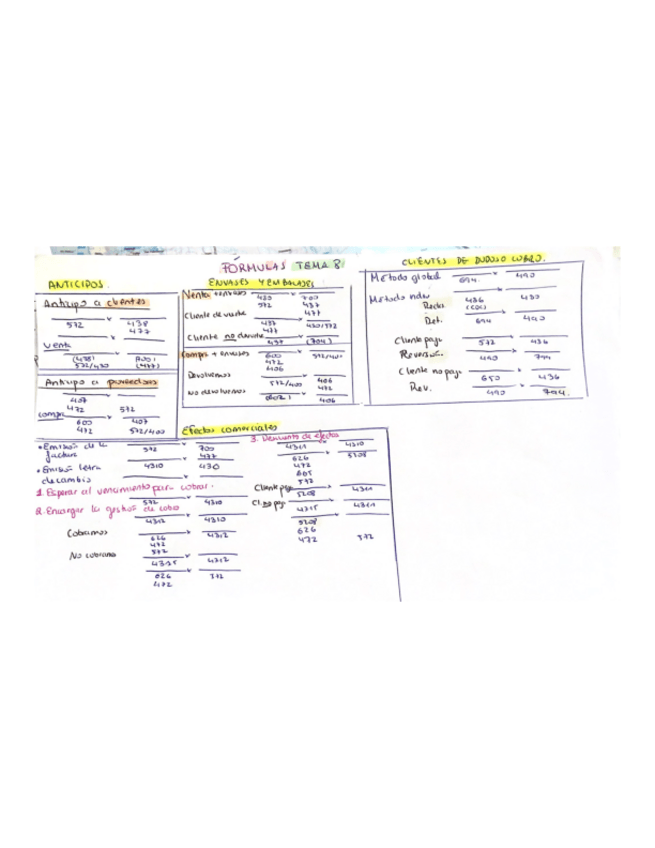 FÓRMULAS TEMA 8
ANTICIPOS.
Anticipo a clientes
572 438
477
Venta
(438) 700 (
572/430 (477)
Anticipo a proveedores
407
472 572
compra
600 407
472 572/400
ENVASES Y EMBALAJES
Venta + envases 430 700
572 437
477
Cliente devuelve
437
477 430/572
Cliente no devuelve
437 (704)
Compra + envases 600 572/400
472
406
Devolvemos
572/400 406
472
No devolvemos
(602) 406
CLIENTES DE DUDOSO COBRO.
Método global
694 490
Método indiv
Recla. 436 430
Det. 694 490
Cliente paga 572 436
Reversión. 490 794
Cliente no paga
650 436
Rev. 490 794
Efectos comerciales
• Emisión de la factura
572 700
477
• Emisión letra de cambio
4310 430
1. Esperar al vencimiento para cobrar.
572 4310
2. Encargar la gestión de cobro
4312 4310
Cobramos
626 4312
472
572
No cobramos
4315 4312
626 572
472
3. Descuento de efectos
4311 4310
626 5208
472
665
572
Cliente paga
5208 4311
Cl. no paga
4315 4311
5208
626
472 572